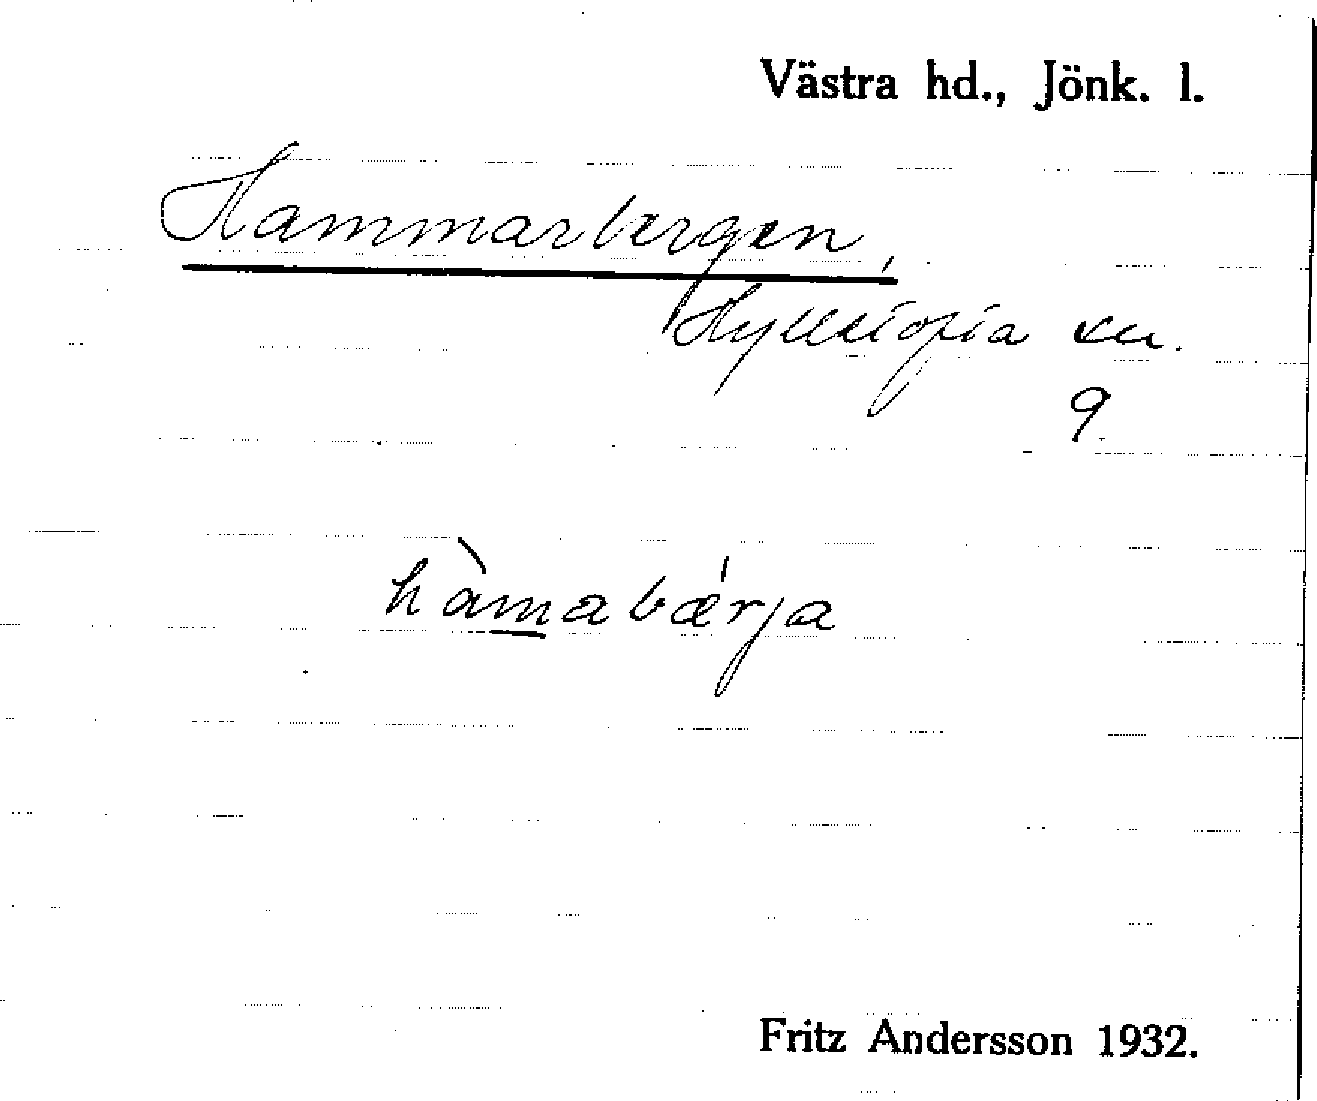 Västra hd., Jönk. l.
Hammarbergen,
Hylletofta sn.
9
hàmabǽrja
Fritz Andersson 1932.